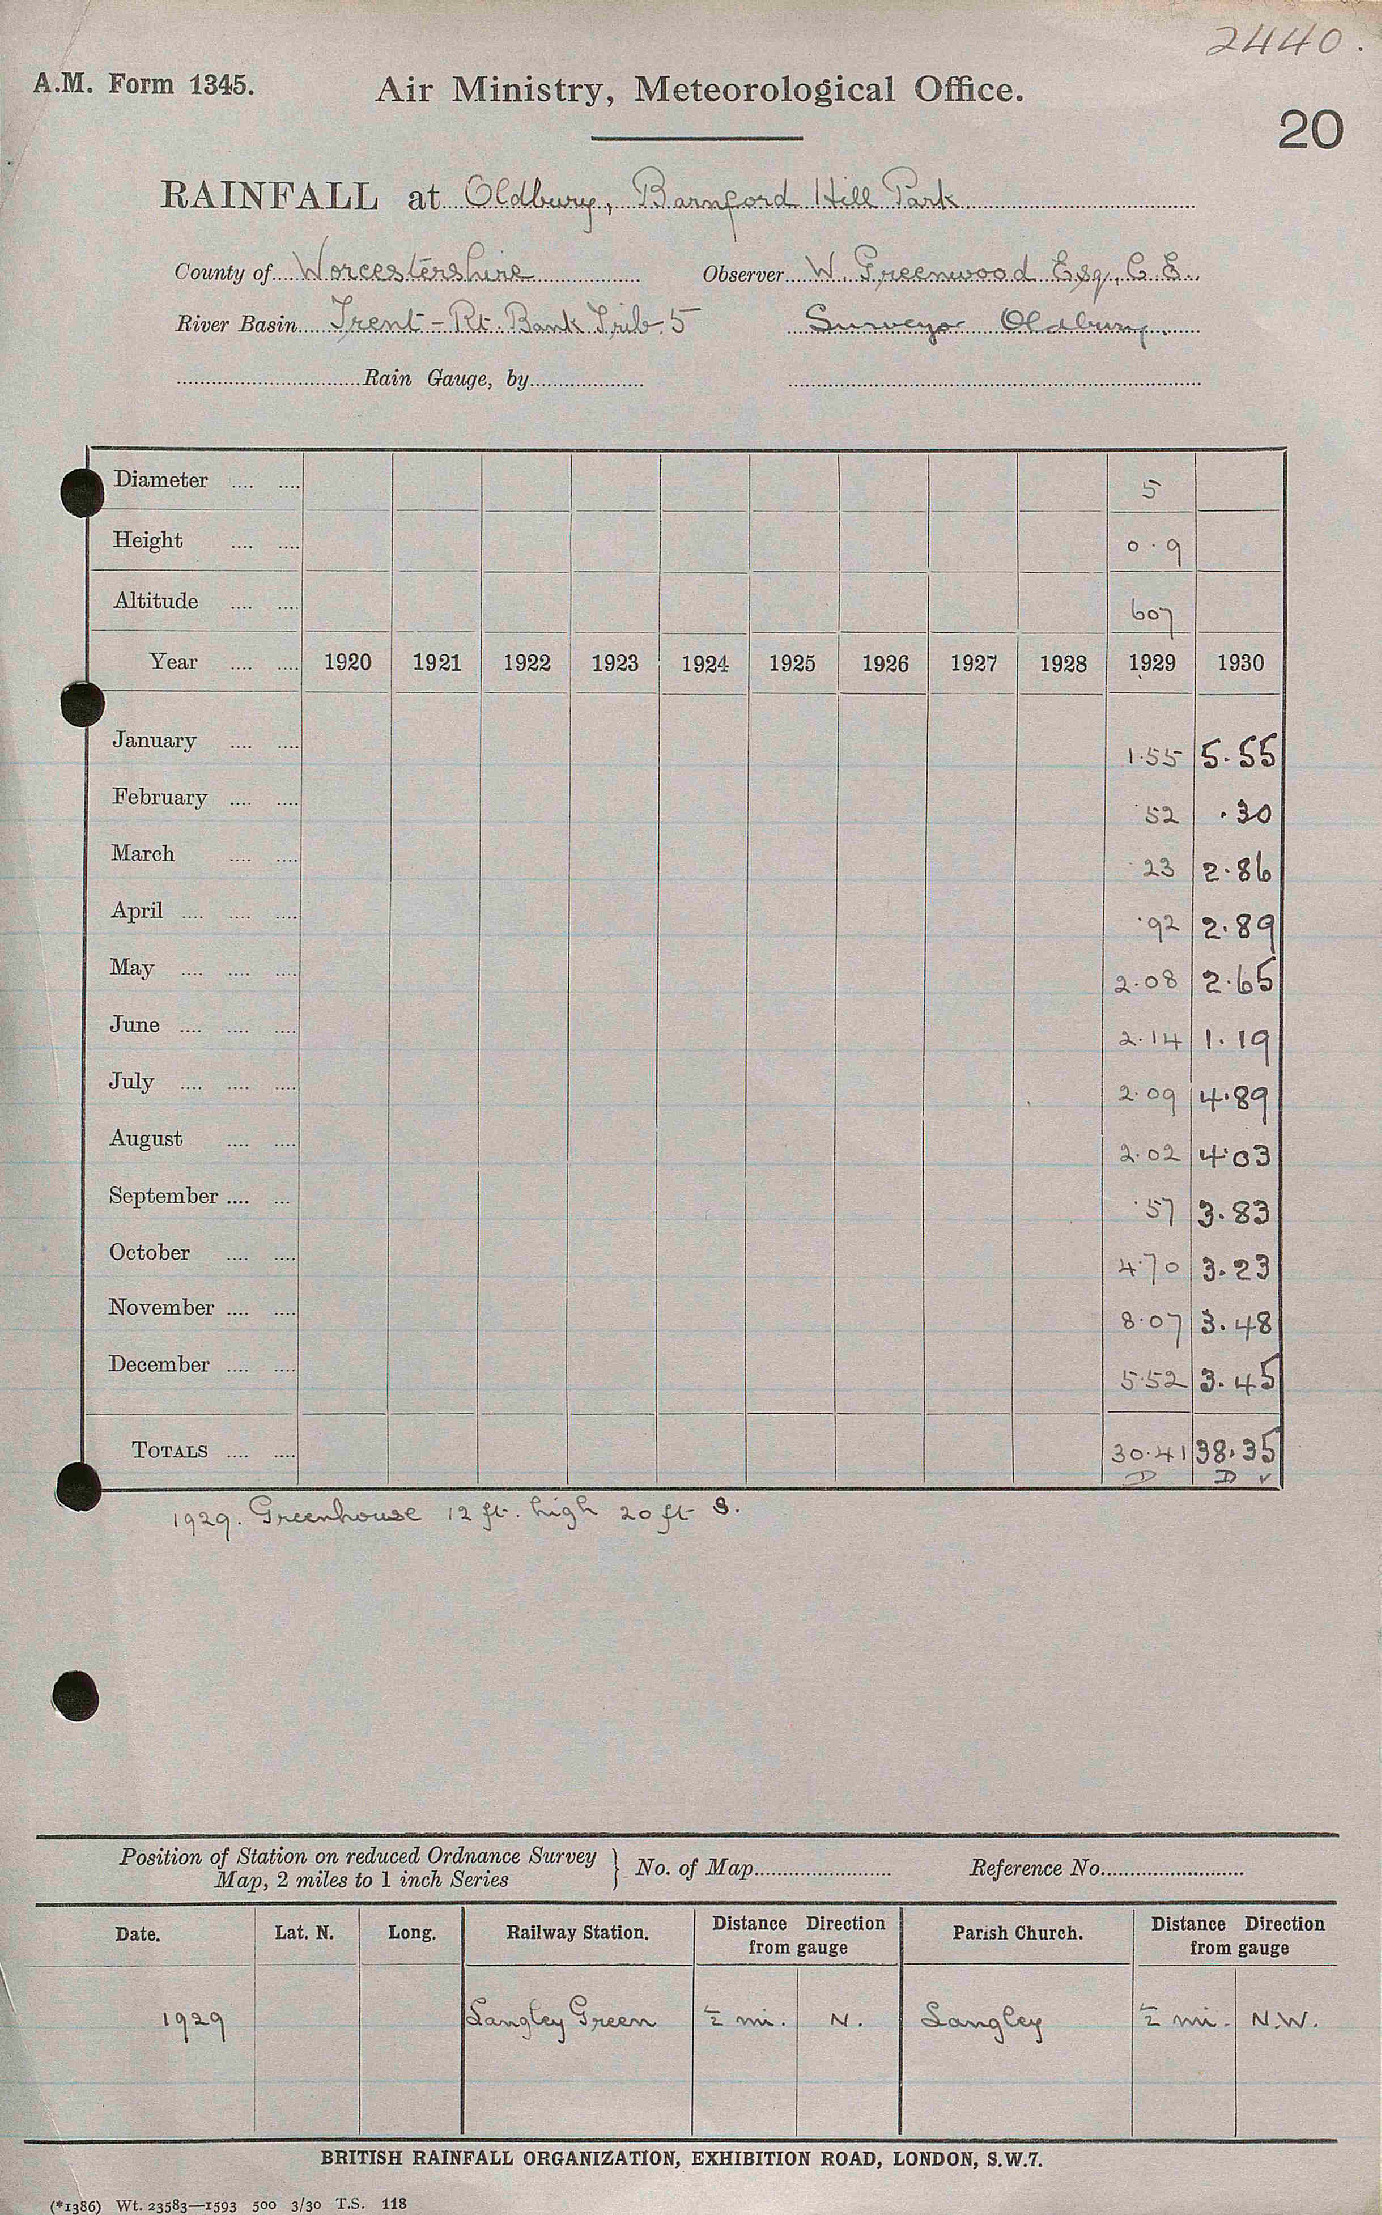 2440.
A.M. Form 1345. Air Ministry, Meteorological Office.
20
RAINFALL at Oldbury, Barnford Hill Park
County of Worcestershire Observer W. Greenwood Esq., C.E.
River Basin Trent - Rt. Bank Trib. 5 Surveyor Oldbury.
Rain Gauge, by
Diameter .... .... 5
Height .... .... 0.9
Altitude .... .... 607
Year .... .... 1920 1921 1922 1923 1924 1925 1926 1927 1928 1929 1930
January .... .... 1.55 5.55
February .... .... .52 .30
March .... .... .23 2.86
April .... .... .... .92 2.89
May .... .... .... 2.08 2.65
June .... .... .... 2.14 1.19
July .... .... .... 2.09 4.89
August .... .... 2.02 4.03
September .... .... .57 3.83
October .... .... 4.70 3.23
November .... .... 8.07 3.48
December .... .... 5.52 3.45
TOTALS .... .... 30.41 38.35
D D ✓
1929. Greenhouse 12 ft. high 20 ft S.
Position of Station on reduced Ordnance Survey
Map, 2 miles to 1 inch Series } No. of Map Reference No.
Date. Lat. N. Long. Railway Station. Distance Direction from gauge Parish Church. Distance Direction from gauge
1929 Langley Green ½ mi. N. Langley ½ mi. N.W.
BRITISH RAINFALL ORGANIZATION, EXHIBITION ROAD, LONDON, S.W.7.
(*1386) Wt. 23583—1593 500 3/30 T.S. 118